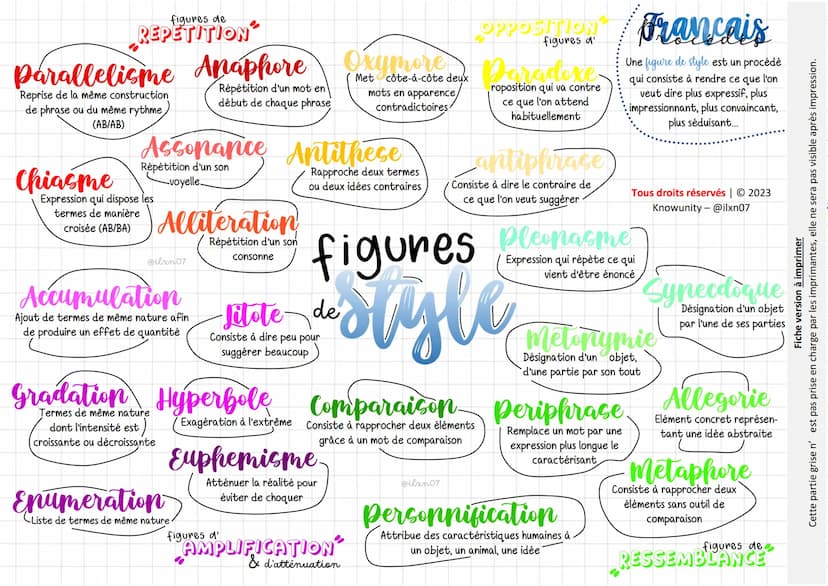 figures de
RÉPÉTITION
Parallélisme
Reprise de la même construction
de phrase ou du même rythme
(AB/AB)
Anaphore
Répétition d'un mot en
début de chaque phrase
Assonance
Répétition d'un son
voyelle
Chiasme
Expression qui dispose les
termes de manière
croisée (AB/BA)
Allitération
Répétition d'un son
consonne
@ilxn07
OPPOSITION
figures d'
Oxymore
Met côte-à-côte deux
mots en apparence
contradictoires
Paradoxe
roposition qui va contre
ce que l'on attend
habituellement
Antithèse
Rapproche deux termes
ou deux idées contraires
antiphrase
Consiste à dire le contraire de
ce que l'on veut suggérer
Français
Procédés
Une figure de style est un procédé
qui consiste à rendre ce que l'on
veut dire plus expressif, plus
impressionnant, plus convaincant,
plus séduisant...
Tous droits réservés | © 2023
Knowunity – @ilxn07
figures
de style
Pléonasme
Expression qui répète ce qui
vient d'être énoncé
Synecdoque
Désignation d'un objet
par l'une de ses parties
Métonymie
Désignation d'un objet,
d'une partie par son tout
Accumulation
Ajout de termes de même nature afin
de produire un effet de quantité
Litote
Consiste à dire peu pour
suggérer beaucoup
Gradation
Termes de même nature
dont l'intensité est
croissante ou décroissante
Hyperbole
Exagération à l'extrême
Euphémisme
Atténuer la réalité pour
éviter de choquer
Enumération
Liste de termes de même nature
figures d'
AMPLIFICATION
& d'atténuation
Comparaison
Consiste à rapprocher deux éléments
grâce à un mot de comparaison
Périphrase
Remplace un mot par une
expression plus longue le
caractérisant
Allégorie
Elément concret représen-
tant une idée abstraite
Métaphore
Consiste à rapprocher deux
éléments sans outil de
comparaison
@ilxn07
Personnification
Attribue des caractéristiques humaines à
un objet, un animal, une idée
figures de
RESSEMBLANCE
Fiche version à imprimer
Cette partie grise n' est pas prise en charge par les imprimantes, elle ne sera pas visible après impression.